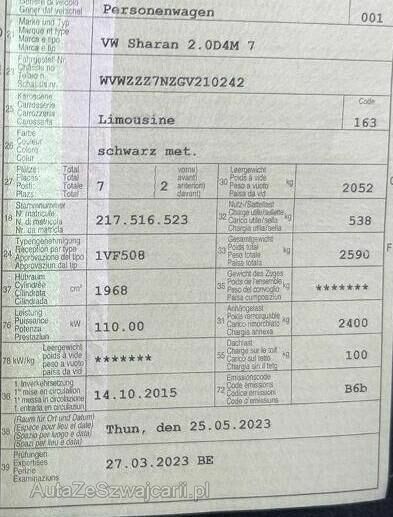 Genere di veicolo
Gener dal vehichel
Personenwagen
001
21
Marke und Typ
Marque et type
Marca e tipo
Marca e tip
VW Sharan 2.0D4M 7
23
Fahrgestell-Nr.
Châssis no
Telaio n.
Schassis nr.
WVWZZZ7NZGV210242
25
Karosserie
Carrosserie
Carrozzeria
Carossaria
Limousine
Code
163
26
Farbe
Couleur
Colore
Colur
schwarz met.
27
Plätze: Total
Places: Total
Posti: Totale
Plazs: Total
7
2
vorne)
avant)
anteriori)
davant)
30
Leergewicht
Poids à vide
Peso a vuoto
Paisa da vid
kg
2052
18
Stammnummer
N° matricule
N. di matricola
Nr. da matricla
217.516.523
32
Nutz-/Sattellast
Charge utile/sellette
Carico utile/sella
Chargia utila/sella
kg
538
24
Typengenehmigung
Réception par type
Approvazione del tipo
Approvaziun dal tip
1VF508
33
Gesamtgewicht
Poids total
Peso totale
Paisa totala
kg
2590
F
37
Hubraum
Cylindrée
Cilindrata
Cilindrada
cm³
1968
35
Gewicht des Zuges
Poids de l'ensemble
Peso del convoglio
Paisa cumposiziun
kg
*******
76
Leistung
Puissance
Potenza
Prestaziun
kW
110.00
31
Anhängelast
Poids remorquable
Carico rimorchiato
Chargia annexa
kg
2400
78 kW/kg
Leergewicht
poids à vide
peso a vuoto
paisa da vid
*******
55
Dachlast
Charge sur le toit
Carico sul tetto
Chargia sin il tetg
kg
100
36
1. Inverkehrsetzung
1re mise en circulation
1a messa in circolazione
1. entrada en circulaziun
14.10.2015
72
Emissionscode
Code émissions
Codice emissioni
Code d'emissiuns
B6b
38
(Raum für Ort und Datum)
(Espace pour lieu et date)
(Spazio per luogo e data)
(Spazi per lieu e data)
Thun, den 25.05.2023
39
Prüfungen
Expertises
Perizie
Examinaziuns
27.03.2023 BE
AutaZeSzwajcarii.pl